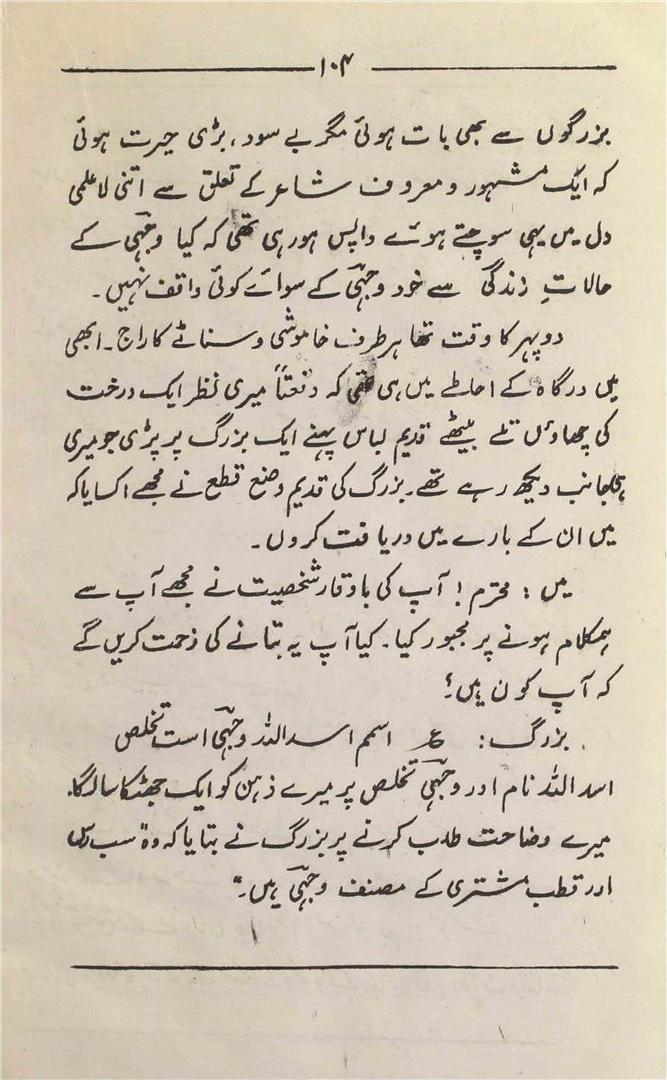 ۱۰۴
بزرگوں سے بھی بات ہوئی مگر بے سود، بڑی حیرت ہوئی
کہ ایک مشہور و معروف شاعر کے تعلق سے اتنی لاعلمی
دل میں یہی سوچتے ہوئے واپس ہو رہی تھی کہ کیا وجہی کے
حالاتِ زندگی سے خود وجہی کے سوائے کوئی واقف نہیں۔
دوپہر کا وقت تھا ہر طرف خاموشی و سناٹے کا راج۔ ابھی
میں درگاہ کے احاطے میں ہی تھی کہ دفعتاً میری نظر ایک درخت
کی چھاؤں تلے بیٹھے قدیم لباس پہنے ایک بزرگ پر پڑی جو میری
ہی جانب دیکھ رہے تھے۔ بزرگ کی قدیم وضع قطع نے مجھے اکسایا کہ
میں ان کے بارے میں دریافت کروں۔
میں : محترم! آپ کی باوقار شخصیت نے مجھے آپ سے
ہمکلام ہونے پر مجبور کیا۔ کیا آپ یہ بتانے کی زحمت کریں گے
کہ آپ کون ہیں؟
بزرگ : ع اسمم اسد اللہ وجہی است تخلص
اسد اللہ نام اور وجہی تخلص پر میرے ذہن کو ایک جھٹکا سا لگا۔
میرے وضاحت طلب کرنے پر بزرگ نے بتایا کہ وہ "سب رس
اور قطب مشتری کے مصنف وجہی ہیں۔"